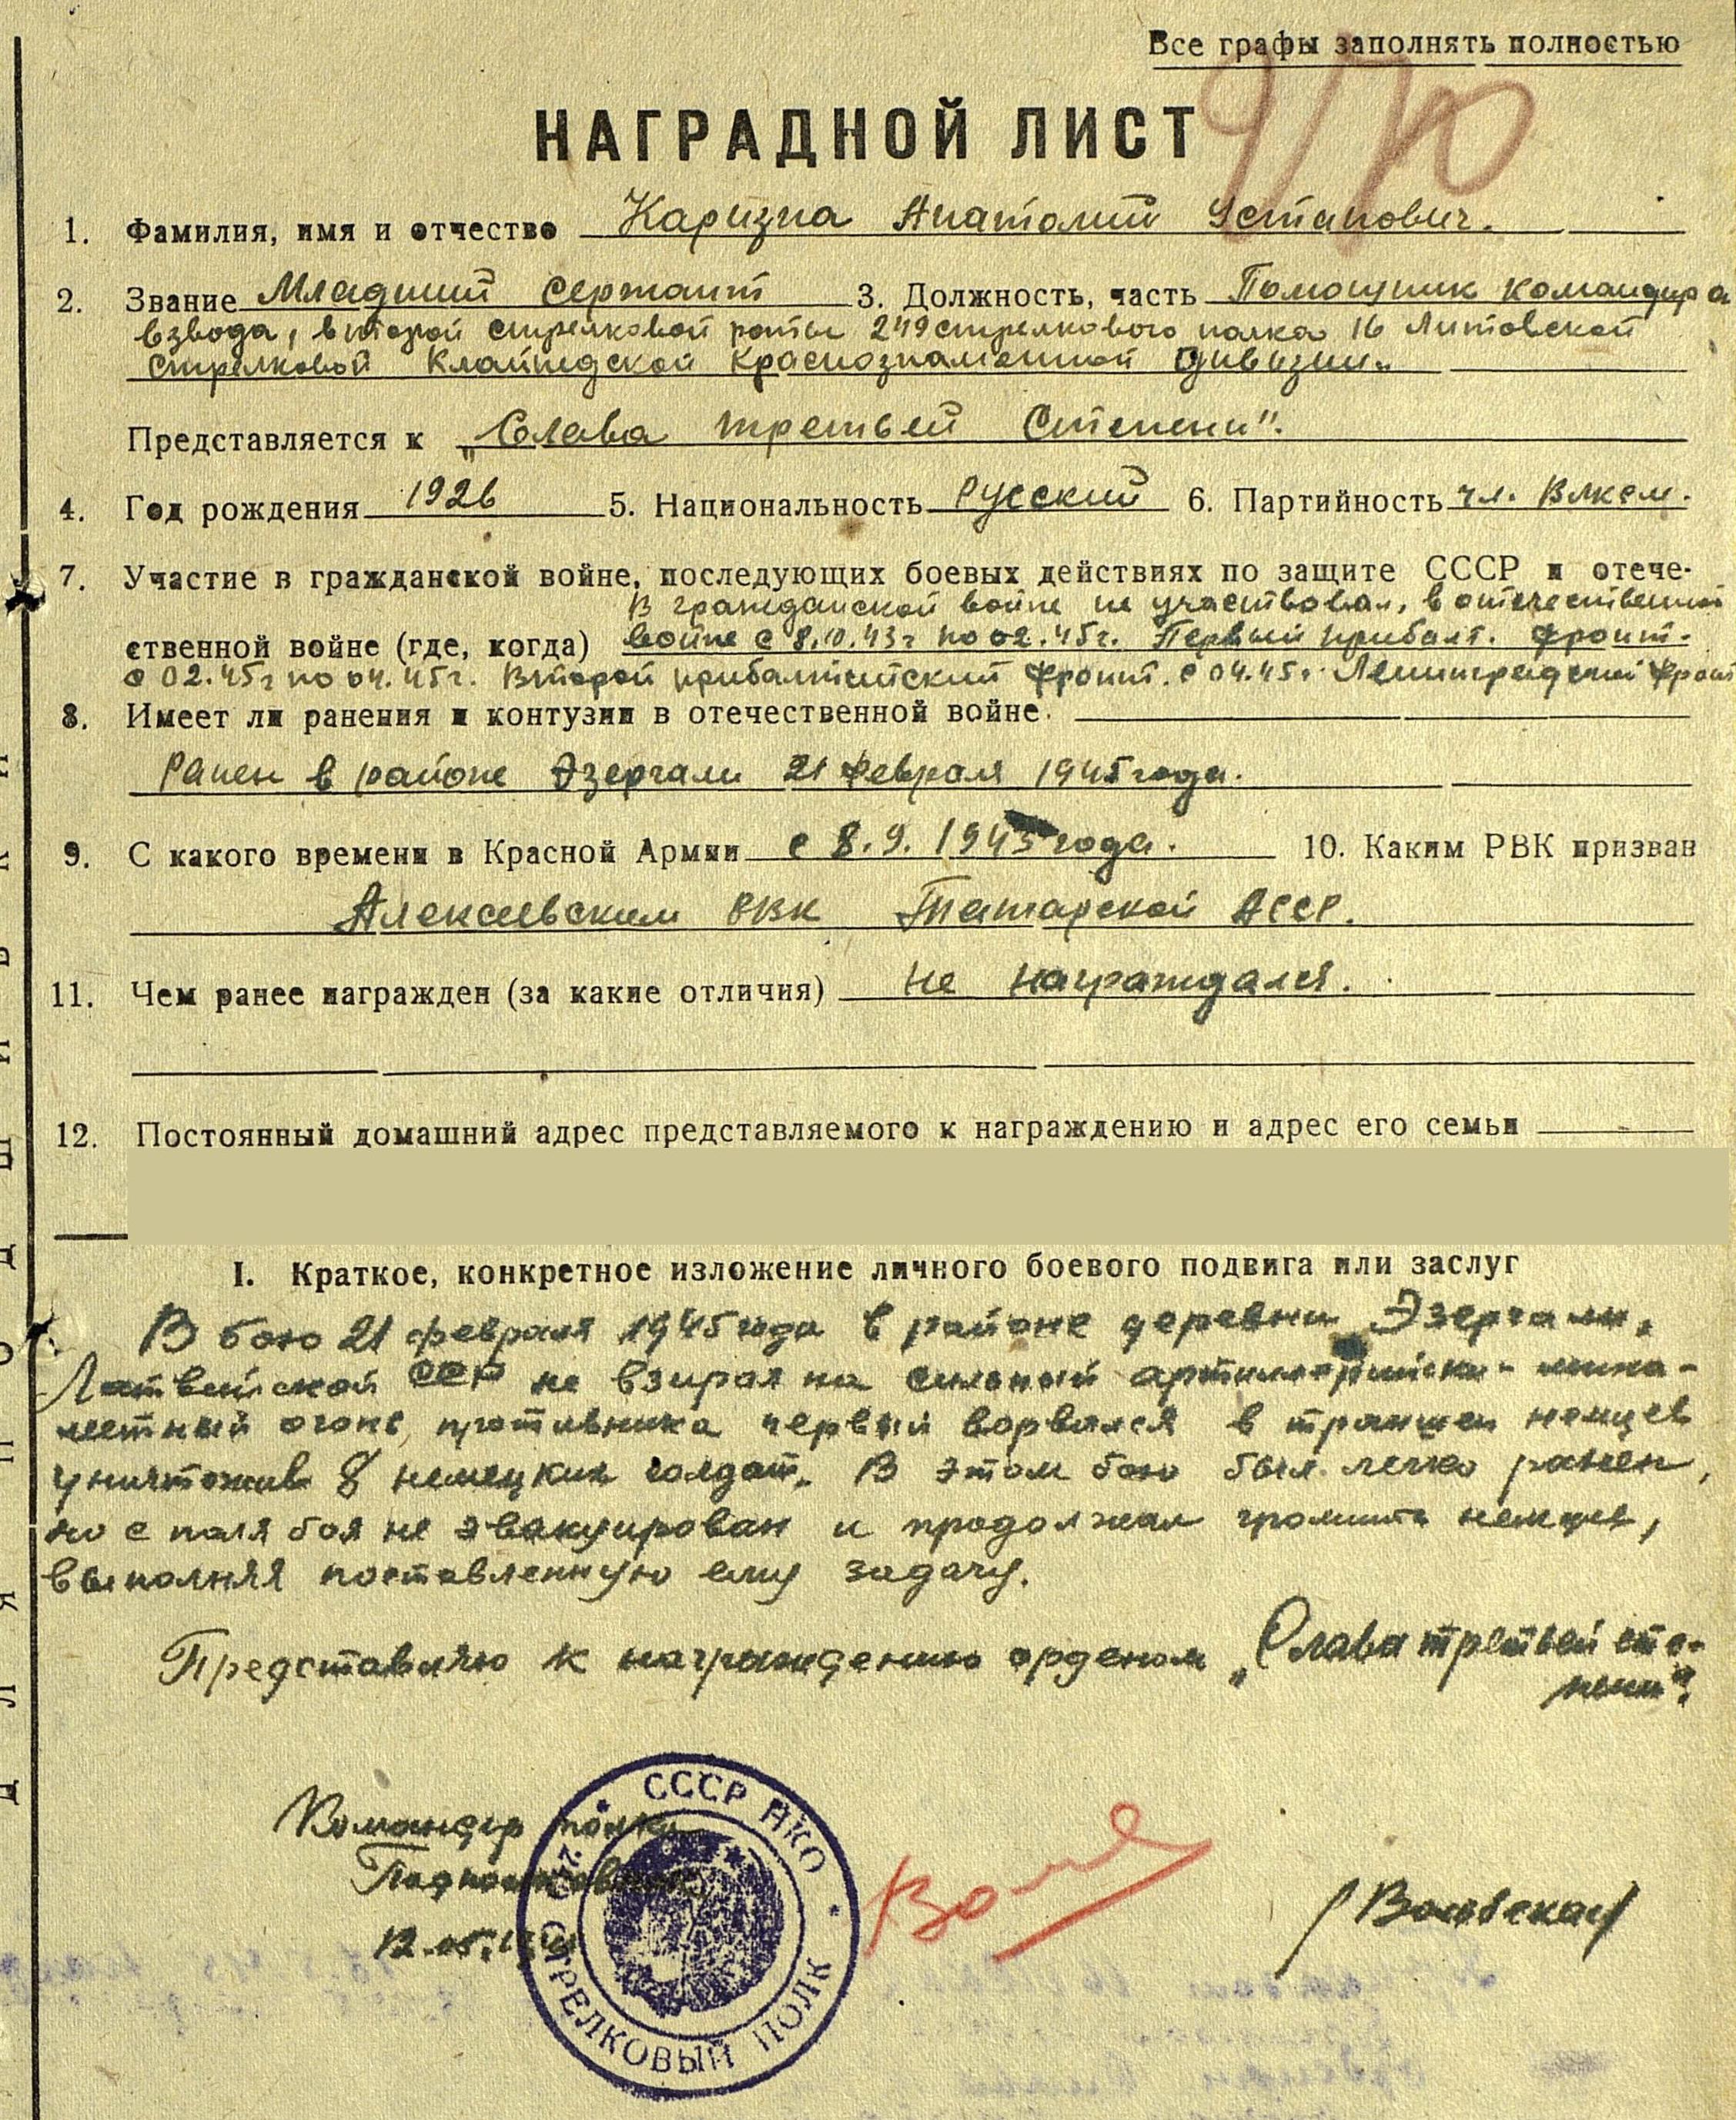 Все графы заполнять полностью
НАГРАДНОЙ ЛИСТ
1. Фамилия, имя и отчество Каризна Анатолий Устинович.
2. Звание Младший сержант 3. Должность, часть Помощник командира
взвода, второй стрелковой роты 249 стрелкового полка 16 Литовской
стрелковой Клайпедской Краснознаменной дивизии.
Представляется к „Слава третьей степени".
4. Год рождения 1926 5. Национальность Русский 6. Партийность чл. Влксм.
7. Участие в гражданской войне, последующих боевых действиях по защите СССР и отече-
В гражданской войне не участвовал, в отечественной
ственной войне (где, когда) войне с 8.10.43г по 02.45г. Первый прибалт. фронт.
с 02.45г по 04.45г. Второй прибалтийский фронт. с 04.45г Ленинградский фронт
8. Имеет ли ранения и контузии в отечественной войне.
Ранен в районе Эзергали 21 февраля 1945 года.
9. С какого времени в Красной Армии с 8.9. 1943 года. 10. Каким РВК призван
Алексеевским РВК Татарской АССР.
11. Чем ранее награжден (за какие отличия) Не награждался.
12. Постоянный домашний адрес представляемого к награждению и адрес его семьи
I. Краткое, конкретное изложение личного боевого подвига или заслуг
В бою 21 февраля 1945 года в районе деревни Эзергали,
Латвийской ССР не взирая на сильный артиллерийски-мино-
метный огонь противника первый ворвался в траншеи немцев
уничтожив 8 немецких солдат. В этом бою был легко ранен,
но с поля боя не эвакуирован и продолжал громить немцев,
выполняя поставленную ему задачу.
Представляю к награждению орденом „Слава третьей сте-
пени".
Командир полка
Подполковник
12.05.
СССР НКО
249 СТРЕЛКОВЫЙ ПОЛК